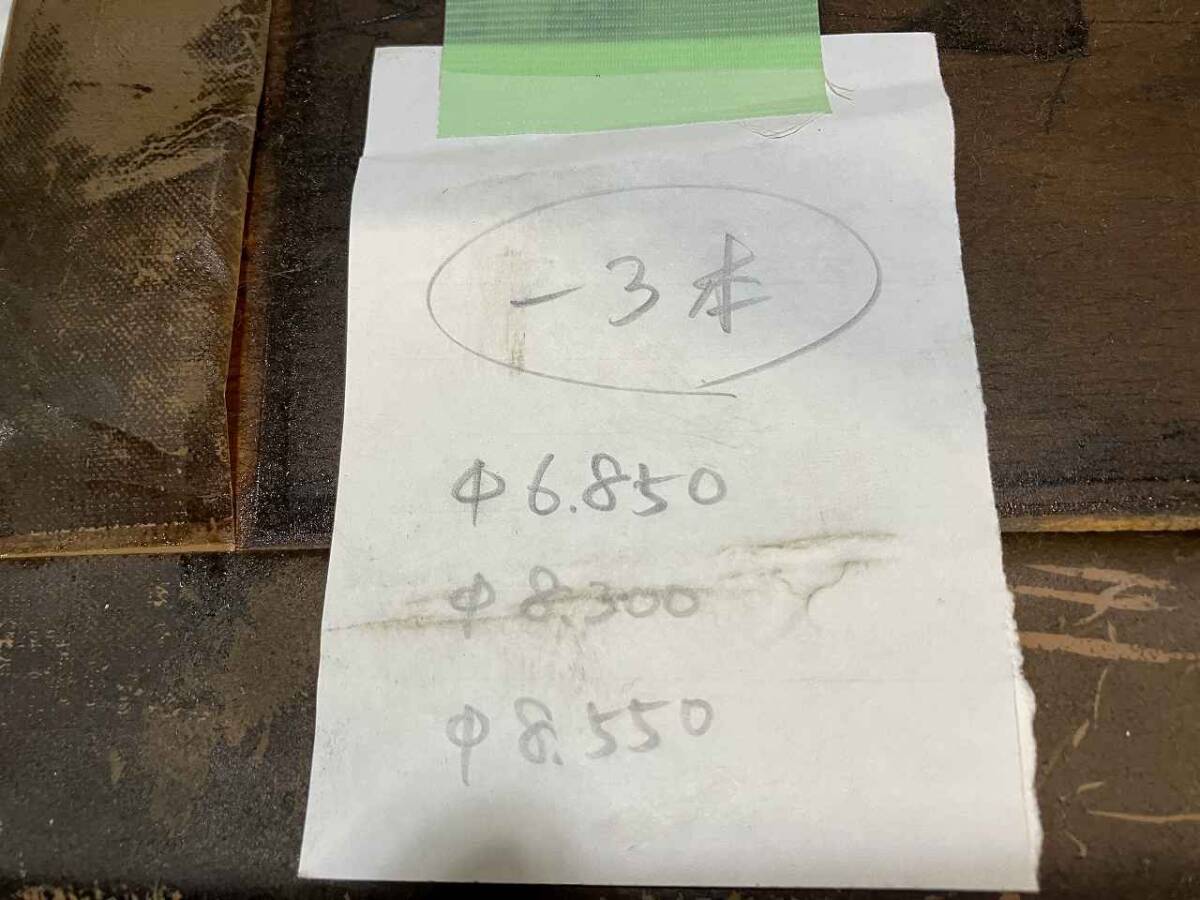 -3本
φ6.850
φ8.300
φ8.550